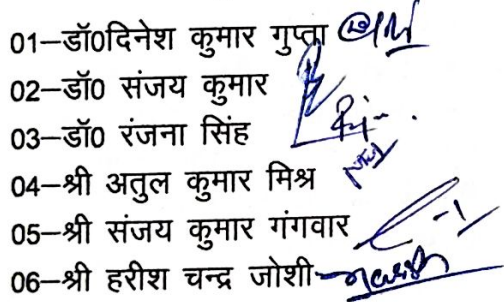 01–डॉ0दिनेश कुमार गुप्ता
02–डॉ0 संजय कुमार
03–डॉ0 रंजना सिंह
04–श्री अतुल कुमार मिश्र
05–श्री संजय कुमार गंगवार
06–श्री हरीश चन्द्र जोशी